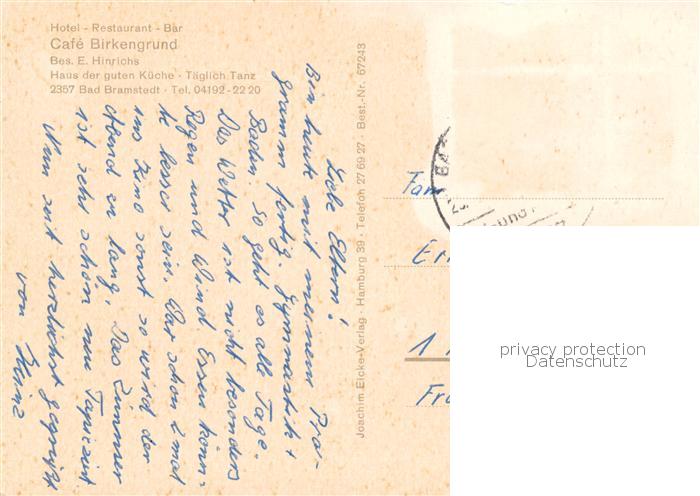 Hotel - Restaurant - Bar
Café Birkengrund
Bes. E. Hinrichs
Haus der guten Küche · Täglich Tanz
2357 Bad Bramstedt · Tel. 04192 - 22 20
Liebe Eltern!
Bin heute mit meinem Pro-
gramm fertig. Gymnastik +
Baden. So geht es alle Tage.
Das Wetter ist nicht besonders
Regen und Wind. Essen könn-
te besser sein. War schon 2 mal
ins Kino sonst so wird der
Abend zu lang. Das Zimmer
ist sehr schön neu Tapeziert
Nun seit herzlichst gegrüßt
von Heinz
Joachim Eicke-Verlag · Hamburg 39 · Telefon 27 69 27 · Best.-Nr. 67243
Fam
1
privacy protection
Datenschutz